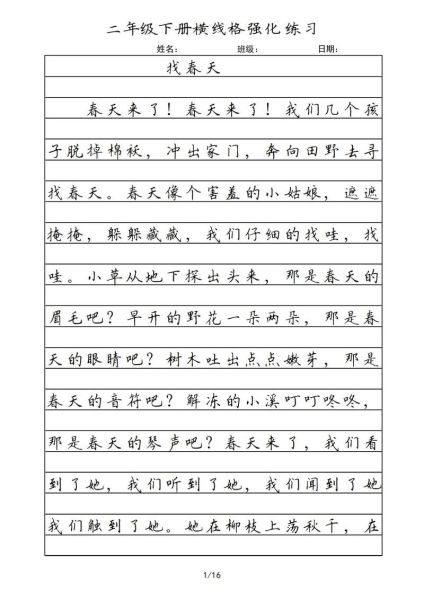 二年级下册横线格强化练习
姓名： 班级： 日期：
找春天
春天来了！春天来了！我们几个孩
子脱掉棉袄，冲出家门，奔向田野去寻
找春天。春天像个害羞的小姑娘，遮遮
掩掩，躲躲藏藏，我们仔细的找哇，找
哇。小草从地下探出头来，那是春天的
眉毛吧？早开的野花一朵两朵，那是春
天的眼睛吧？树木吐出点点嫩芽，那是
春天的音符吧？解冻的小溪叮叮咚咚，
那是春天的琴声吧？春天来了，我们看
到了她，我们听到了她，我们闻到了她
我们触到了她。她在柳枝上荡秋千，在
1/16